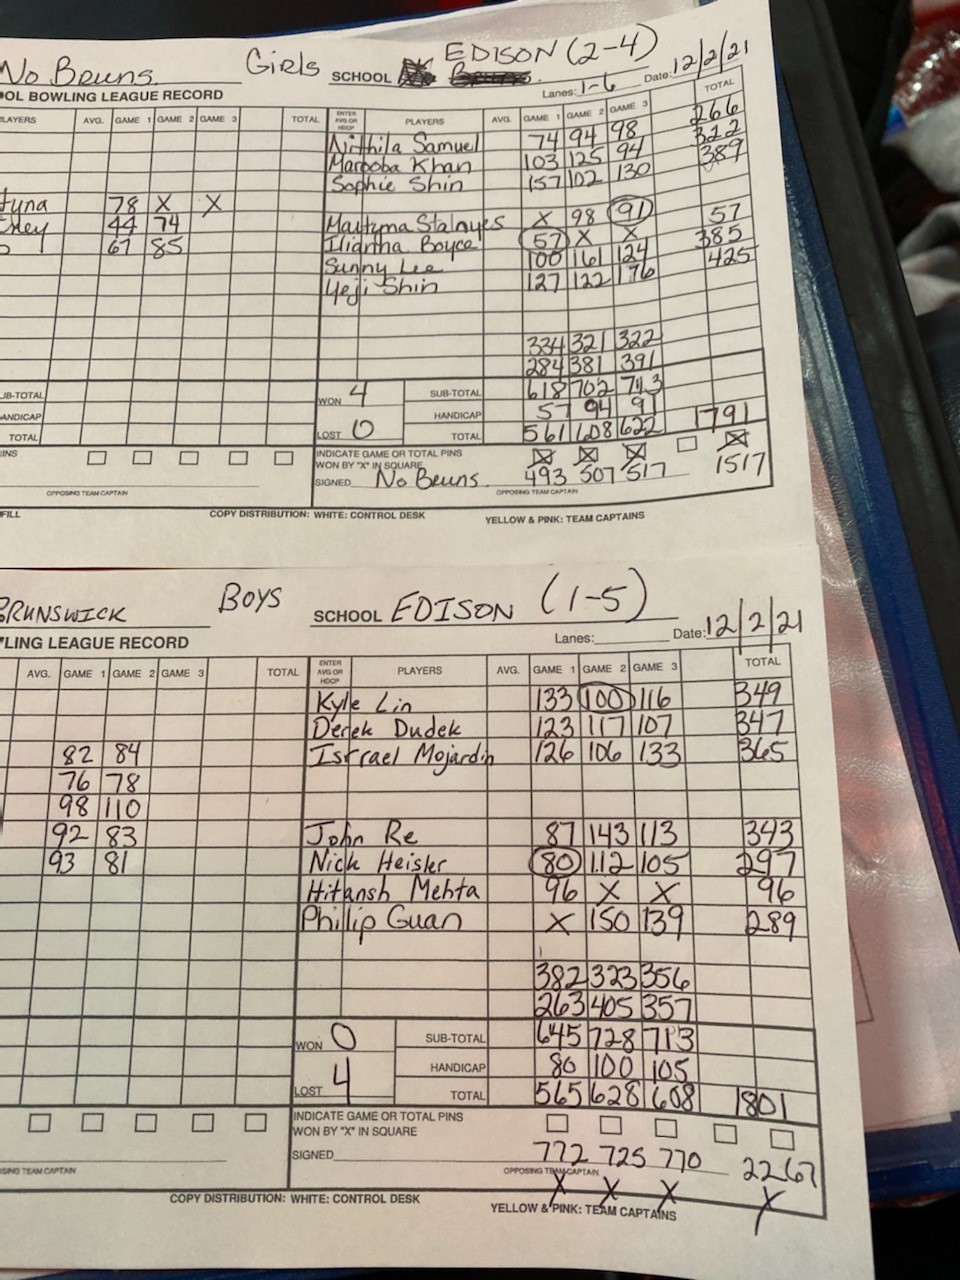 No Bruns. Girls SCHOOL EDISON (2-4)
OL BOWLING LEAGUE RECORD Lanes: 1-6 Date: 12/2/21
LAYERS AVG. GAME 1 GAME 2 GAME 3 TOTAL ENTER AVG OR HDCP PLAYERS AVG. GAME 1 GAME 2 GAME 3 TOTAL
Nithila Samuel 74 94 98 266
Marooba Khan 103 125 94 322
Sophie Shin 157 102 130 389
tuna 78 X X Maityma Stalnyes X 98 91
ney 44 74 Iliantha Boyce 57 X X 57
67 85 Sunny Lee 100 161 124 385
Yeji Shin 127 122 176 425
334 321 322
284 381 391
UB-TOTAL WON 4 SUB-TOTAL 618 702 713
ANDICAP HANDICAP 57 94 91
TOTAL LOST 0 TOTAL 561 608 622 1791
INS INDICATE GAME OR TOTAL PINS
WON BY "X" IN SQUARE X X X X
SIGNED No Bruns. 493 507 517 1517
OPPOSING TEAM CAPTAIN OPPOSING TEAM CAPTAIN
FILL COPY DISTRIBUTION: WHITE: CONTROL DESK YELLOW & PINK: TEAM CAPTAINS
BRUNSWICK BOYS SCHOOL EDISON (1-5)
LING LEAGUE RECORD Lanes: Date: 12/2/21
AVG. GAME 1 GAME 2 GAME 3 TOTAL ENTER AVG OR HDCP PLAYERS AVG. GAME 1 GAME 2 GAME 3 TOTAL
Kyle Lin 133 100 116 349
Derek Dudek 123 117 107 347
82 84 Isrrael Mojardin 126 106 133 365
76 78
98 110
92 83 John Re 87 143 113 343
93 81 Nick Heisler 80 112 105 297
Hitansh Mehta 96 X X 96
Phillip Guan X 150 139 289
382 323 356
263 405 357
WON 0 SUB-TOTAL 645 728 713
HANDICAP 80 100 105
LOST 4 TOTAL 565 628 608 1801
INDICATE GAME OR TOTAL PINS
WON BY "X" IN SQUARE
SIGNED 772 725 770 2267
SING TEAM CAPTAIN OPPOSING TEAM CAPTAIN
X X X X
COPY DISTRIBUTION: WHITE: CONTROL DESK YELLOW & PINK: TEAM CAPTAINS